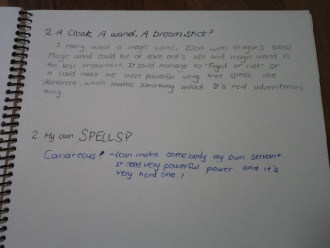 2. A Cloak, A wand, A broomstick?
I really want a magic wand, 20cm with dragon's blood.
Magic wand could kill or save one's life and magic wand is
the most important. It could manage to "Fight or not" or
it could make me most powerful using that spells like
which makes something unlock. It's real adventerous
thing.
2. My own SPELLS?
Carrateous! - (can make somebody my own servant.
It need very powerful power and it's
very hard one.)